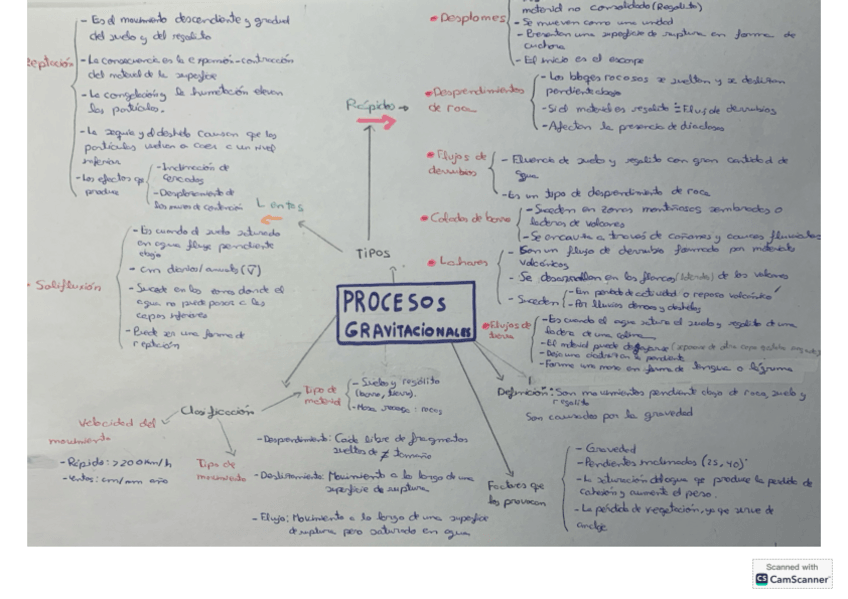 material no consolidado (Regolito)
Desplomes
- Se mueven como una unidad
- Presentan una superficie de ruptura en forma de
cuchara
- El inicio es el escarpe
- Es el movimiento descendiente y gradual
del suelo y del regolito
Reptación
- La consecuencia es la expansión-contracción
del material de la superficie
- La congelación y la humectación elevan
las partículas.
- La sequía y el deshielo causan que las
partículas vuelvan a caer a un nivel
inferior
- Los efectos que
produce
- Inclinación de
cercados
- Desplazamiento de
los muros de contención
Rápidos
Desprendimientos
de roca
- Los bloques rocosos se sueltan y se deslizan
pendiente abajo
- Si el material es regolito = Flujo de derrubios
- Afectan la presencia de diaclasas
Flujos de
derrubios
- Fluencia de suelo y regolito con gran cantidad de
agua
- Es un tipo de desprendimiento de roca
Coladas de barro
- Suceden en zonas montañosas semiáridas o
laderas de volcanes
- Se encauza a través de cañones y cauces fluviales
Lahares
- Son un flujo de derrubio formado por materiales
volcánicos
- Se desarrollan en los flancos (laterales) de los volcanes
- Suceden
- En periodo de actividad o reposo volcánico
- Por lluvias densas y deshielos
Lentos
Solifluxión
- Es cuando el suelo saturado
en agua fluye pendiente
abajo
- cm diarios/anuales (V)
- Sucede en las zonas donde el
agua no puede pasar a las
capas inferiores
- Puede ser una forma de
reptación
TIPOS
PROCESOS
GRAVITACIONALES
Flujos de
tierra
- Es cuando el agua satura el suelo y regolito de una
ladera de una colina
- El material puede
- Deja una cicatriz en la pendiente
- Forma una masa en forma de lengua o lágrima
Definición: Son movimientos pendiente abajo de roca, suelo y
regolito
Son causados por la gravedad
Tipo de
material
- Suelos y regolito
(barro, tierra).
- Masa rocosa: rocas
Clasificación
Velocidad del
movimiento
- Rápido: >200 Km/h
- Lentos: cm/mm año
Tipo de
movimiento
- Desprendimiento: Caída libre de fragmentos
sueltos de ≠ tamaño
- Deslizamiento: Movimiento a lo largo de una
superficie de ruptura
- Flujo: Movimiento a lo largo de una superficie
de ruptura pero saturado en agua
Factores que
los provocan
- Gravedad
- Pendientes inclinadas (25, 40)°
- La saturación del agua que produce la pérdida de
cohesión y aumente el peso.
- La pérdida de vegetación, ya que sirve de
anclaje
Scanned with
CS CamScanner